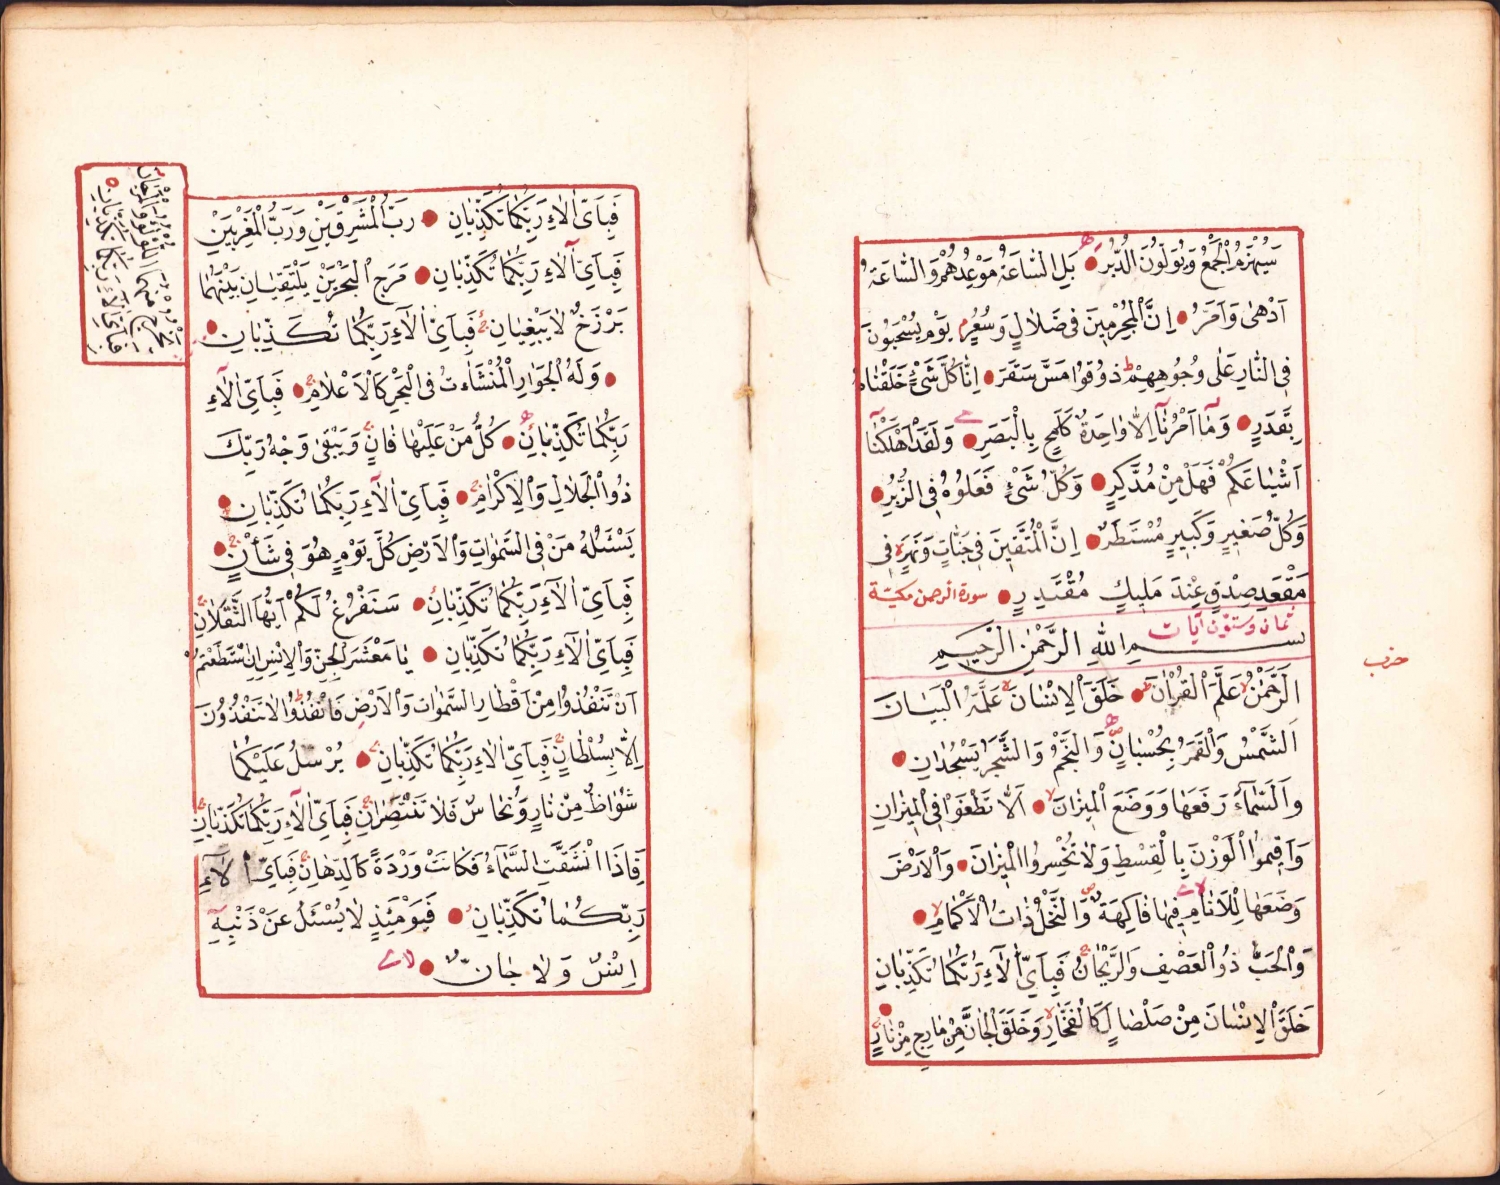 سَيُهْزَمُ الْجَمْعُ وَيُوَلُّونَ الدُّبُرَ ● بَلِ السَّاعَةُ مَوْعِدُهُمْ وَالسَّاعَةُ
اَدْهٰى وَاَمَرُّ ● اِنَّ الْمُجْرِمِينَ فِى ضَلَالٍ وَسُعُرٍ يَوْمَ يُسْحَبُونَ
فِى النَّارِ عَلٰى وُجُوهِهِمْ ذُوقُوا مَسَّ سَقَرَ ● اِنَّا كُلَّ شَىْءٍ خَلَقْنَاهُ
بِقَدَرٍ ● وَمَا اَمْرُنَا اِلَّا وَاحِدَةٌ كَلَمْحٍ بِالْبَصَرِ ● وَلَقَدْ اَهْلَكْنَا
اَشْيَاعَكُمْ فَهَلْ مِنْ مُدَّكِرٍ ● وَكُلُّ شَىْءٍ فَعَلُوهُ فِى الزُّبُرِ ●
وَكُلُّ صَغِيرٍ وَكَبِيرٍ مُسْتَطَرٌ ● اِنَّ الْمُتَّقِينَ فِى جَنَّاتٍ وَنَهَرٍ فِى
مَقْعَدِ صِدْقٍ عِنْدَ مَلِيكٍ مُقْتَدِرٍ ● سورة الرحمن مكيّة
ثمان وستون آيات
بِسْمِ اللّٰهِ الرَّحْمٰنِ الرَّحِيمِ
حزب
اَلرَّحْمٰنُ عَلَّمَ الْقُرْاٰنَ ● خَلَقَ الْاِنْسَانَ عَلَّمَهُ الْبَيَانَ
اَلشَّمْسُ وَالْقَمَرُ بِحُسْبَانٍ وَالنَّجْمُ وَالشَّجَرُ يَسْجُدَانِ ●
وَالسَّمَاءَ رَفَعَهَا وَوَضَعَ الْمِيزَانَ ● اَلَّا تَطْغَوْا فِى الْمِيزَانِ
وَاَقِيمُوا الْوَزْنَ بِالْقِسْطِ وَلَا تُخْسِرُوا الْمِيزَانَ ● وَالْاَرْضَ
وَضَعَهَا لِلْاَنَامِ فِيهَا فَاكِهَةٌ وَالنَّخْلُ ذَاتُ الْاَكْمَامِ ●
وَالْحَبُّ ذُو الْعَصْفِ وَالرَّيْحَانُ فَبِاَىِّ اٰلَاءِ رَبِّكُمَا تُكَذِّبَانِ
● خَلَقَ الْاِنْسَانَ مِنْ صَلْصَالٍ كَالْفَخَّارِ وَخَلَقَ الْجَانَّ مِنْ مَارِجٍ مِنْ نَارٍ
فَبِاَىِّ اٰلَاءِ رَبِّكُمَا تُكَذِّبَانِ ● رَبُّ الْمَشْرِقَيْنِ وَرَبُّ الْمَغْرِبَيْنِ
فَبِاَىِّ اٰلَاءِ رَبِّكُمَا تُكَذِّبَانِ ● مَرَجَ الْبَحْرَيْنِ يَلْتَقِيَانِ بَيْنَهُمَا
بَرْزَخٌ لَا يَبْغِيَانِ فَبِاَىِّ اٰلَاءِ رَبِّكُمَا تُكَذِّبَانِ ●
يَخْرُجُ مِنْهُمَا اللُّؤْلُؤُ وَالْمَرْجَانُ
فَبِاَىِّ اٰلَاءِ رَبِّكُمَا تُكَذِّبَانِ
● وَلَهُ الْجَوَارِ الْمُنْشَاٰتُ فِى الْبَحْرِ كَالْاَعْلَامِ ● فَبِاَىِّ اٰلَاءِ
رَبِّكُمَا تُكَذِّبَانِ ● كُلُّ مَنْ عَلَيْهَا فَانٍ وَيَبْقٰى وَجْهُ رَبِّكَ
ذُو الْجَلَالِ وَالْاِكْرَامِ ● فَبِاَىِّ اٰلَاءِ رَبِّكُمَا تُكَذِّبَانِ ●
يَسْئَلُهُ مَنْ فِى السَّمٰوَاتِ وَالْاَرْضِ كُلَّ يَوْمٍ هُوَ فِى شَأْنٍ ●
فَبِاَىِّ اٰلَاءِ رَبِّكُمَا تُكَذِّبَانِ ● سَنَفْرُغُ لَكُمْ اَيُّهَ الثَّقَلَانِ
فَبِاَىِّ اٰلَاءِ رَبِّكُمَا تُكَذِّبَانِ ● يَا مَعْشَرَ الْجِنِّ وَالْاِنْسِ اِنِ اسْتَطَعْتُمْ
اَنْ تَنْفُذُوا مِنْ اَقْطَارِ السَّمٰوَاتِ وَالْاَرْضِ فَانْفُذُوا لَا تَنْفُذُونَ
اِلَّا بِسُلْطَانٍ فَبِاَىِّ اٰلَاءِ رَبِّكُمَا تُكَذِّبَانِ ● يُرْسَلُ عَلَيْكُمَا
شُوَاظٌ مِنْ نَارٍ وَنُحَاسٌ فَلَا تَنْتَصِرَانِ فَبِاَىِّ اٰلَاءِ رَبِّكُمَا تُكَذِّبَانِ
فَاِذَا انْشَقَّتِ السَّمَاءُ فَكَانَتْ وَرْدَةً كَالدِّهَانِ فَبِاَىِّ اٰلَاءِ
رَبِّكُمَا تُكَذِّبَانِ ● فَيَوْمَئِذٍ لَا يُسْئَلُ عَنْ ذَنْبِهِ
اِنْسٌ وَلَا جَانٌّ ●